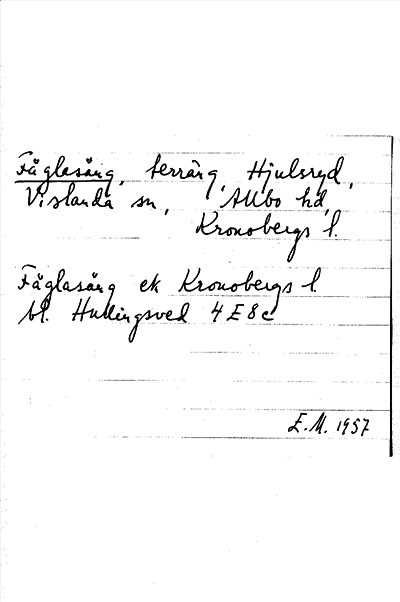 Fåglasång, terräng, Hjulsryd,
Vislanda sn, Allbo hd,
Kronobergs l.
Fåglasång ek Kronobergs l.
bl. Hullingsved 4 E 8 c
E.M. 1957